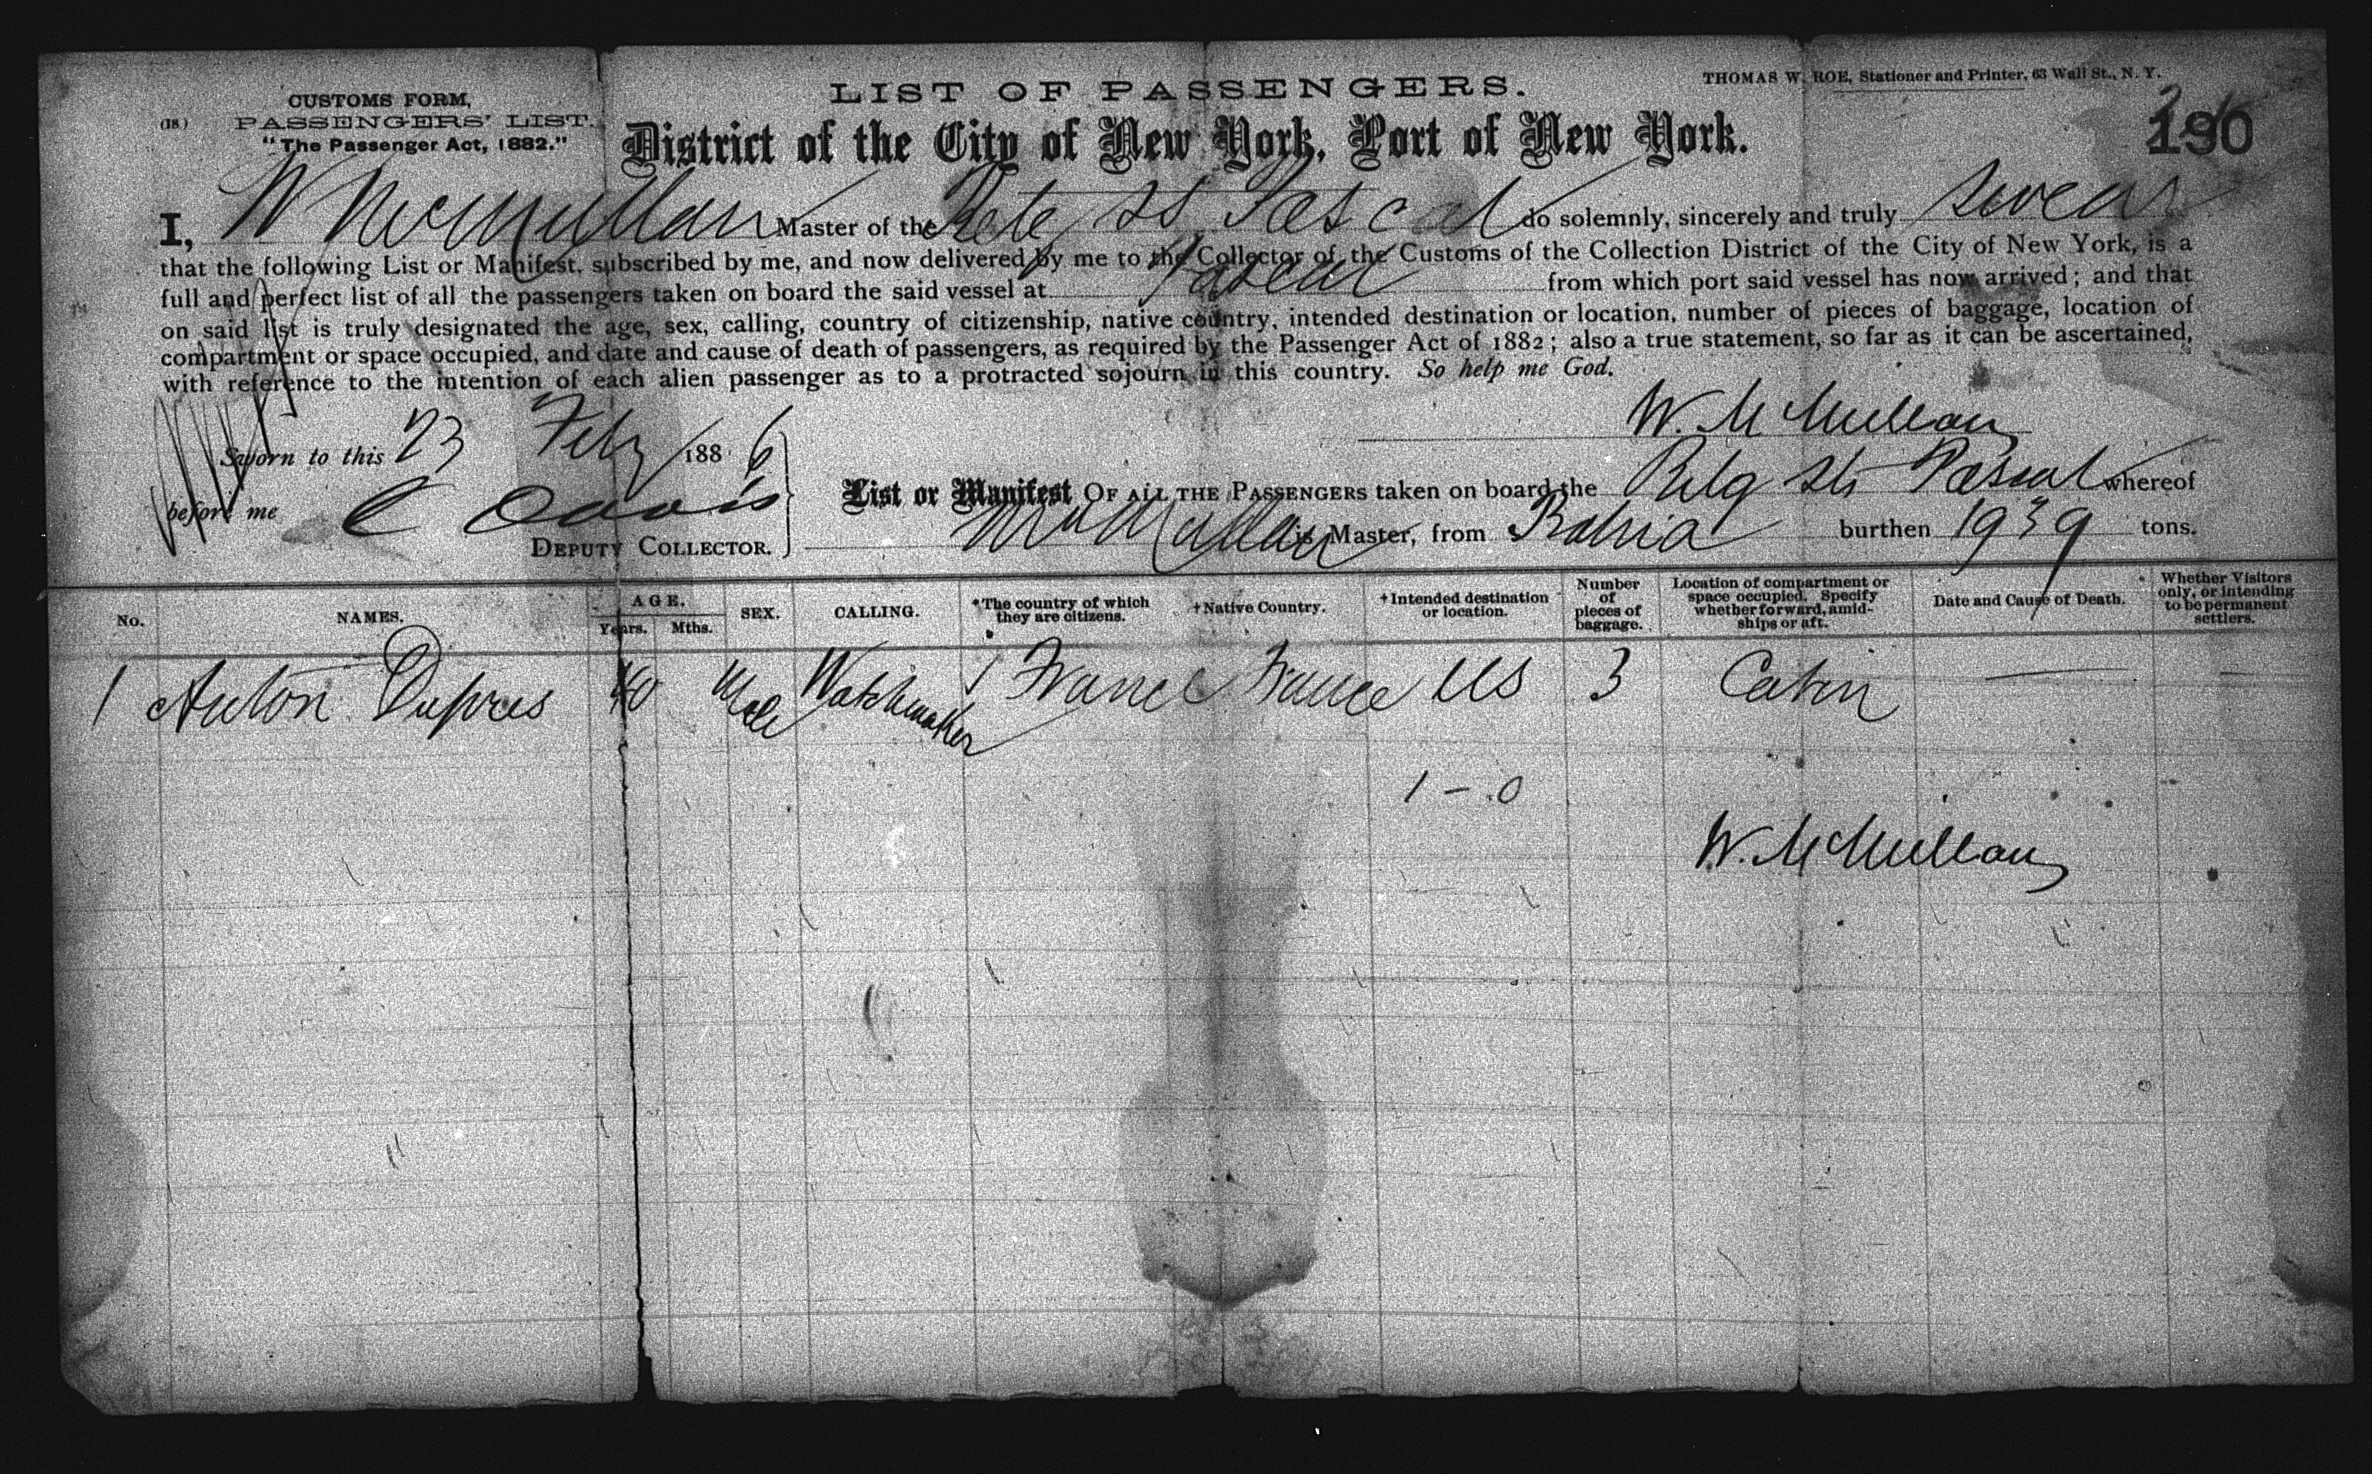 LIST OF PASSENGERS.
THOMAS W. ROE, Stationer and Printer, 63 Wall St., N. Y.
CUSTOMS FORM,
(18.) PASSENGERS' LIST.
"The Passenger Act, 1882."
District of the City of New York, Port of New York.
190
I, W McMullan Master of the SS Pascal do solemnly, sincerely and truly swear
that the following List or Manifest, subscribed by me, and now delivered by me to the Collector of the Customs of the Collection District of the City of New York, is a
full and perfect list of all the passengers taken on board the said vessel at from which port said vessel has now arrived; and that
on said list is truly designated the age, sex, calling, country of citizenship, native country, intended destination or location, number of pieces of baggage, location of
compartment or space occupied, and date and cause of death of passengers, as required by the Passenger Act of 1882; also a true statement, so far as it can be ascertained,
with reference to the intention of each alien passenger as to a protracted sojourn in this country. So help me God.
W. McMullan
Sworn to this 23 Feby 1886
before me C Davis
DEPUTY COLLECTOR.
List or Manifest OF ALL THE PASSENGERS taken on board the Belg Str Pascal whereof
McMullan is Master, from Bahia burthen 1939 tons.
No. NAMES. AGE. Years. Mths. SEX. CALLING. *The country of which they are citizens. †Native Country. †Intended destination or location. Number of pieces of baggage. Location of compartment or space occupied. Specify whether forward, amidships or aft. Date and Cause of Death. Whether Visitors only, or intending to be permanent settlers.
1 Anton Dupres 40 Male Watchmaker France France US 3 Cabin —
1 - 0
W. McMullan